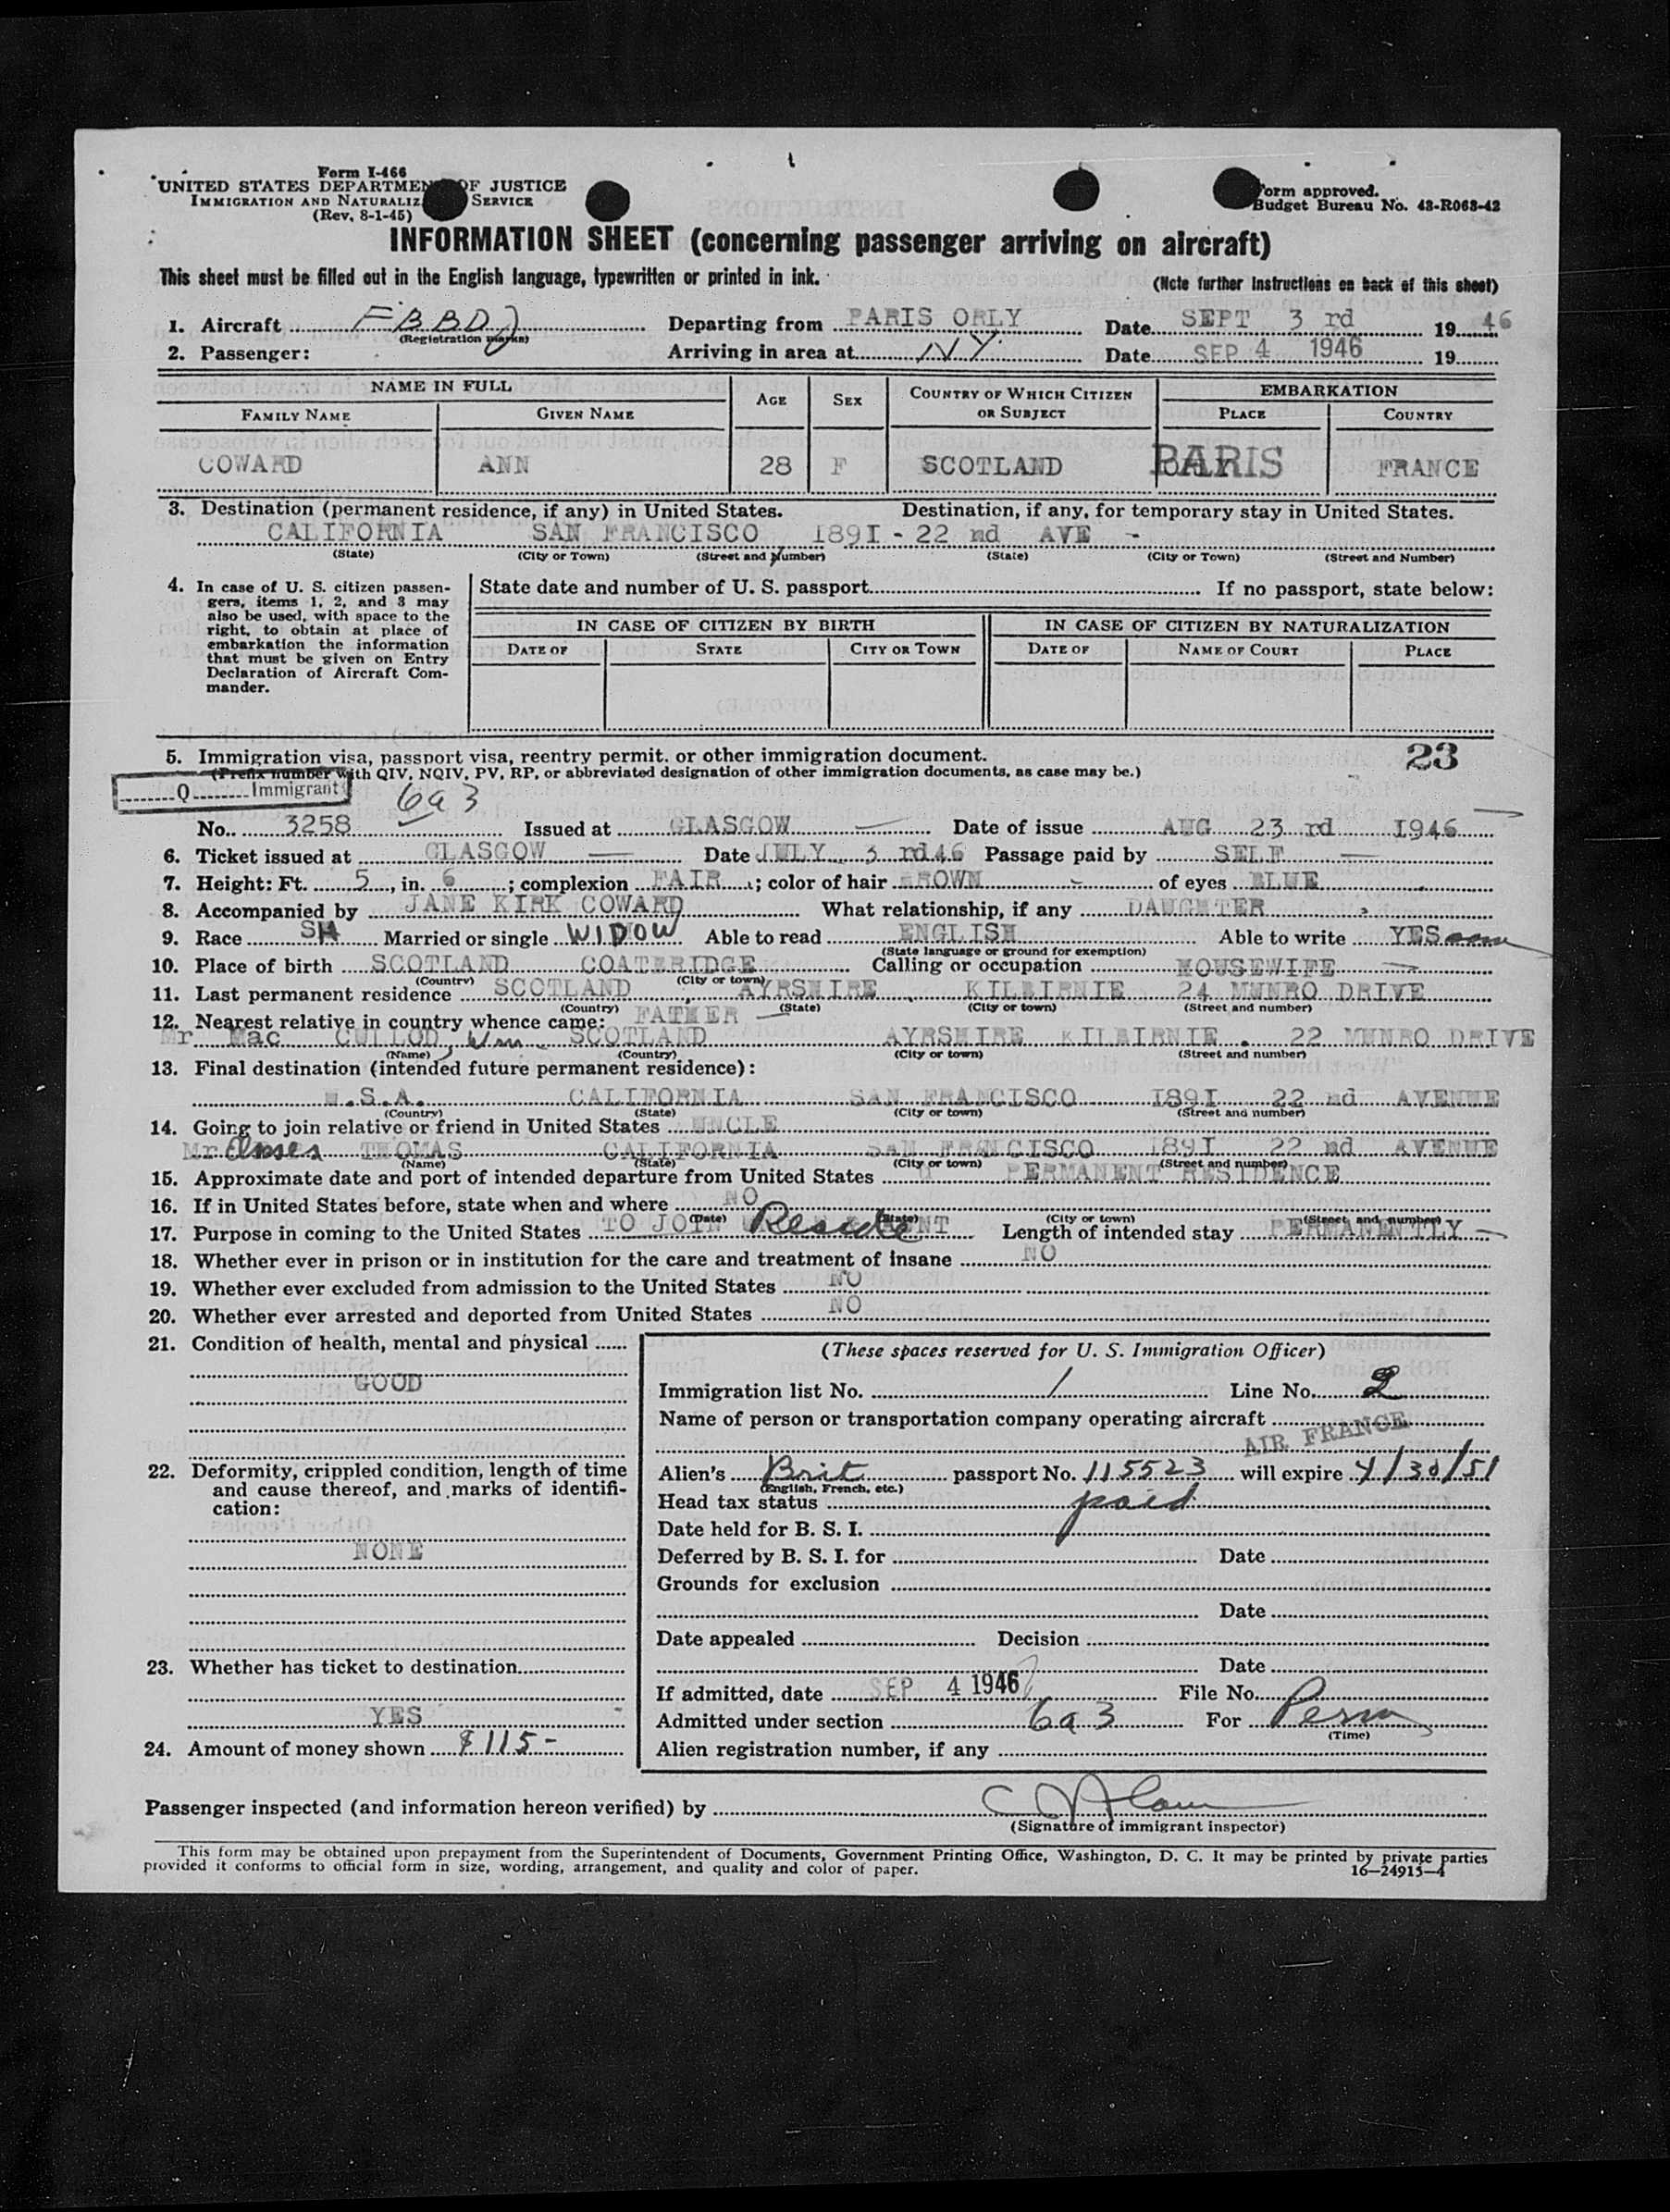 Form I-466
UNITED STATES DEPARTMENT OF JUSTICE
IMMIGRATION AND NATURALIZ SERVICE
(Rev. 8-1-45)
Form approved.
Budget Bureau No. 43-R063-42
INFORMATION SHEET (concerning passenger arriving on aircraft)
This sheet must be filled out in the English language, typewritten or printed in ink.
(Note further instructions on back of this sheet)
1. Aircraft FBBDJ Departing from PARIS ORLY Date SEPT 3 rd 1946
(Registration marks)
2. Passenger: Arriving in area at NY Date SEP 4 1946 19
NAME IN FULL AGE SEX COUNTRY OF WHICH CITIZEN OR SUBJECT EMBARKATION
FAMILY NAME GIVEN NAME PLACE COUNTRY
COWARD ANN 28 F SCOTLAND PARIS FRANCE
3. Destination (permanent residence, if any) in United States. Destination, if any, for temporary stay in United States.
CALIFORNIA SAN FRANCISCO 1891 - 22 nd AVE -
(State) (City or Town) (Street and Number) (State) (City or Town) (Street and Number)
4. In case of U. S. citizen passen-
gers, items 1, 2, and 3 may
also be used, with space to the
right, to obtain at place of
embarkation the information
that must be given on Entry
Declaration of Aircraft Com-
mander.
State date and number of U. S. passport If no passport, state below:
IN CASE OF CITIZEN BY BIRTH IN CASE OF CITIZEN BY NATURALIZATION
DATE OF STATE CITY OR TOWN DATE OF NAME OF COURT PLACE
5. Immigration visa, passport visa, reentry permit. or other immigration document. 23
(Prefix number with QIV, NQIV, PV, RP, or abbreviated designation of other immigration documents, as case may be.)
Q Immigrant 6a3
No. 3258 Issued at GLASGOW Date of issue AUG 23 rd 1946
6. Ticket issued at GLASGOW Date JULY 3 rd 46 Passage paid by SELF
7. Height: Ft. 5, in. 6; complexion FAIR; color of hair BROWN of eyes BLUE
8. Accompanied by JANE KIRK COWARD What relationship, if any DAUGHTER
9. Race SH Married or single WIDOW Able to read ENGLISH Able to write YES
(State language or ground for exemption)
10. Place of birth SCOTLAND COATBRIDGE Calling or occupation HOUSEWIFE
(Country) (City or town)
11. Last permanent residence SCOTLAND, AYRSHIRE, KILBIRNIE 24 MUNRO DRIVE
(Country) (State) (City or town) (Street and number)
12. Nearest relative in country whence came: FATHER
Mr Mac CULLOD, Wm SCOTLAND AYRSHIRE KILBIRNIE . 22 MUNRO DRIVE
(Name) (Country) (City or town) (Street and number)
13. Final destination (intended future permanent residence):
U.S.A. CALIFORNIA SAN FRANCISCO 1891 22 nd AVENUE
(Country) (State) (City or town) (Street and number)
14. Going to join relative or friend in United States UNCLE
Mr THOMAS CALIFORNIA SAN FRANCISCO 1891 22 nd AVENUE
(Name) (State) (City or town) (Street and number)
15. Approximate date and port of intended departure from United States PERMANENT RESIDENCE
16. If in United States before, state when and where NO
(Date) (State) (City or town) (Street and number)
17. Purpose in coming to the United States TO JOIN Reside Length of intended stay PERMANENTLY
18. Whether ever in prison or in institution for the care and treatment of insane NO
19. Whether ever excluded from admission to the United States NO
20. Whether ever arrested and deported from United States NO
21. Condition of health, mental and physical
GOOD
22. Deformity, crippled condition, length of time
and cause thereof, and marks of identifi-
cation:
NONE
23. Whether has ticket to destination
YES
24. Amount of money shown $115-
(These spaces reserved for U. S. Immigration Officer)
Immigration list No. 1 Line No. 2
Name of person or transportation company operating aircraft
AIR FRANCE
Alien's Brit passport No. 115523 will expire 4/30/51
(English, French, etc.)
Head tax status paid
Date held for B. S. I.
Deferred by B. S. I. for Date
Grounds for exclusion
Date
Date appealed Decision
Date
If admitted, date SEP 4 1946 File No.
Admitted under section 6a3 For Perm
(Time)
Alien registration number, if any
Passenger inspected (and information hereon verified) by
(Signature of immigrant inspector)
This form may be obtained upon prepayment from the Superintendent of Documents, Government Printing Office, Washington, D. C. It may be printed by private parties
provided it conforms to official form in size, wording, arrangement, and quality and color of paper. 16—24915-4